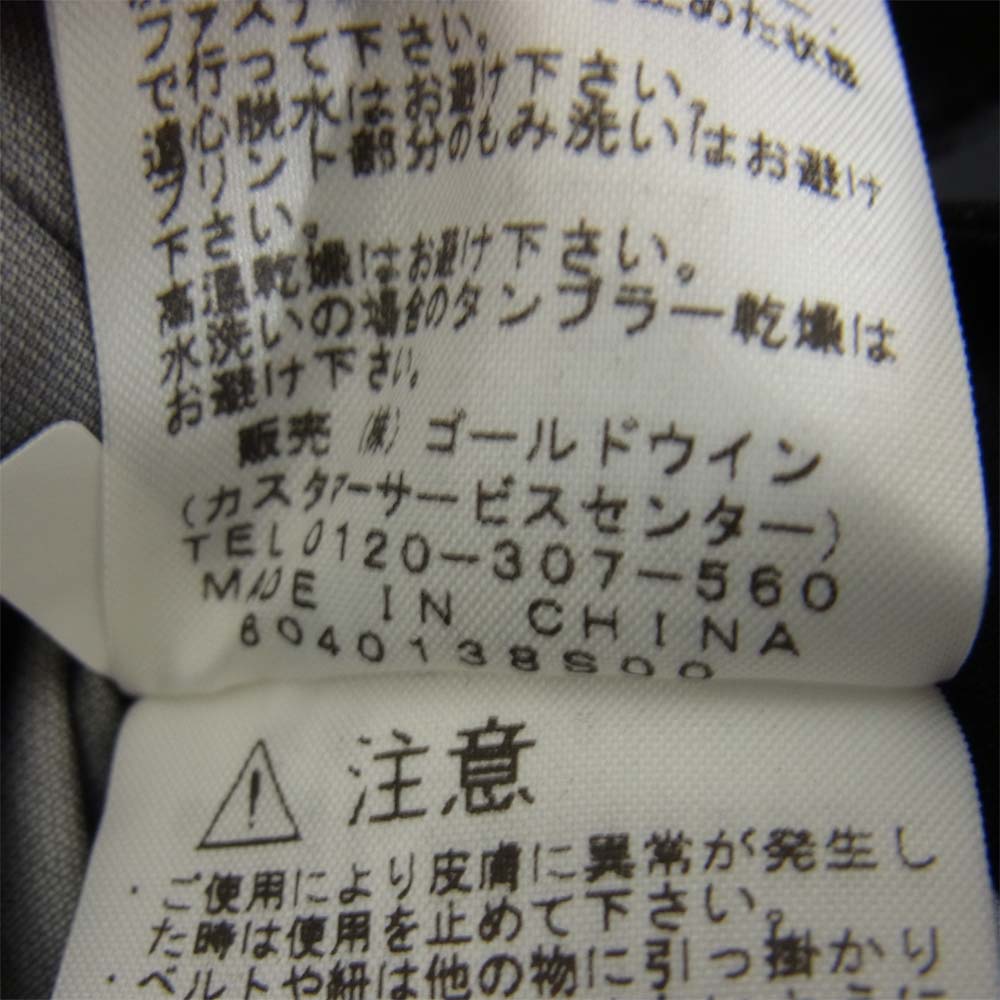 止めた状態
で行って下さい。
遠心脱水はお避け下さい。
プリント部分のもみ洗いはお避け
下さい。
高温乾燥はお避け下さい。
水洗いの場合のタンブラー乾燥は
お避け下さい。
販売 (株) ゴールドウイン
(カスタマーサービスセンター)
TEL 0120-307-560
MADE IN CHINA
6040138S00
注意
・ご使用により皮膚に異常が発生し
た時は使用を止めて下さい。
・ベルトや紐は他の物に引っ掛かり